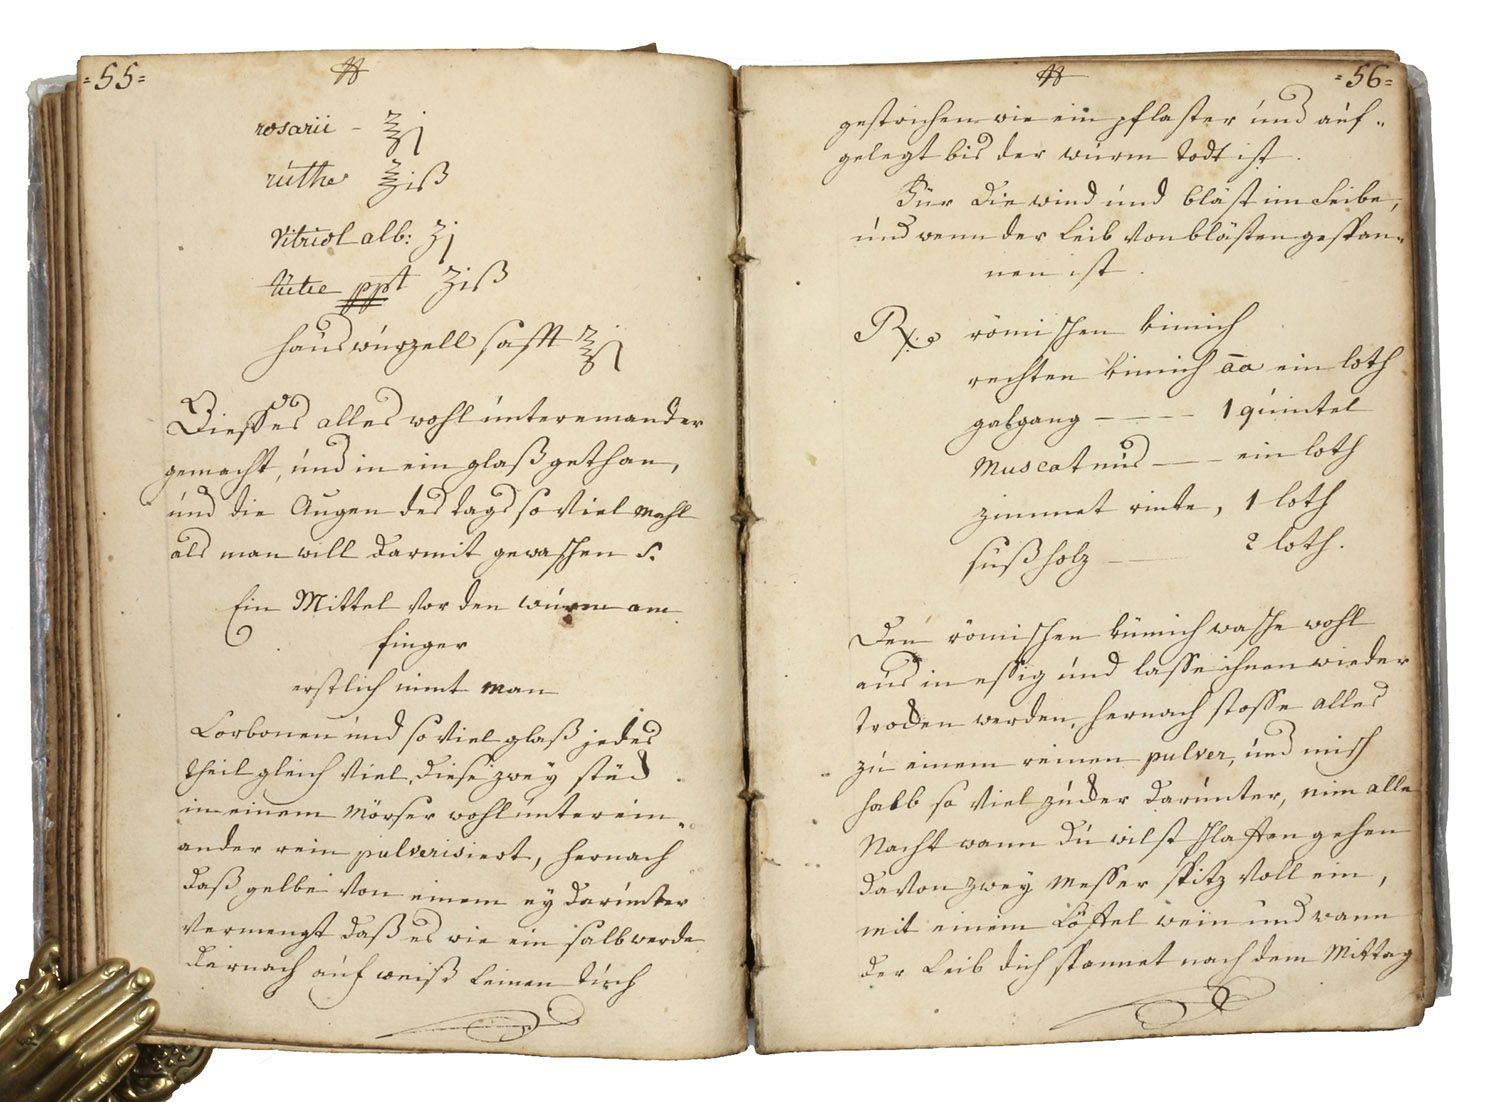 =55=
rosarii – ʒʒj
ruthe ʒiß
Vitriol alb: ʒj
tutie ppt ʒiß
haus wurzell safft
Diesses alles wohl untereinander
gemacht, und in ein glaß gethan,
und die Augen des tags so viel mahl
als man will darmit gewaschen
Ein Mittel vor den wurm am
finger
erstlich nimt man
und so viel glaß jedes
theil gleich viel, diese zwey stück
in einem mörser wohl unterein„
ander rein pulverisiert, hernach
daß gelbe von einem ey darunter
vermengt daß es wie ein salb werde
darnach auf weiß leinen tuch
=56=
gestrichen wie ein pflaster und auf„
gelegt bis der wurm todt ist.
Für die wind und bläst im Leibe,
und wenn der Leib von blästen gespan„
nen ist.
Rx. römischen kümich
rechten kümich āā ein loth
galgang – – – 1 quintel
Muscatnus – – ein loth
zimmet rinte, 1 loth
süßholz – – 2 loth.
Den römischen kümich wasche wohl
aus in essig und lasse ihnen wieder
trocken werden, hernach stosse alles
zu einem reinen pulver, und misch
halb so viel zucker darunter, nim alle
Nacht wann du wilst schlaffen gehen
davon zwey messer spitz voll ein,
mit einem Löffel wein und wann
der Leib dich spannet nach dem Mittag